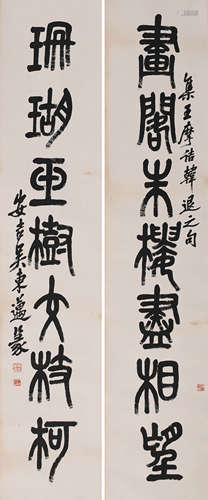 畫閣朱樓盡相望
集王摩詰韓退之句
珊瑚樹交枝柯
安吉吳東邁篆